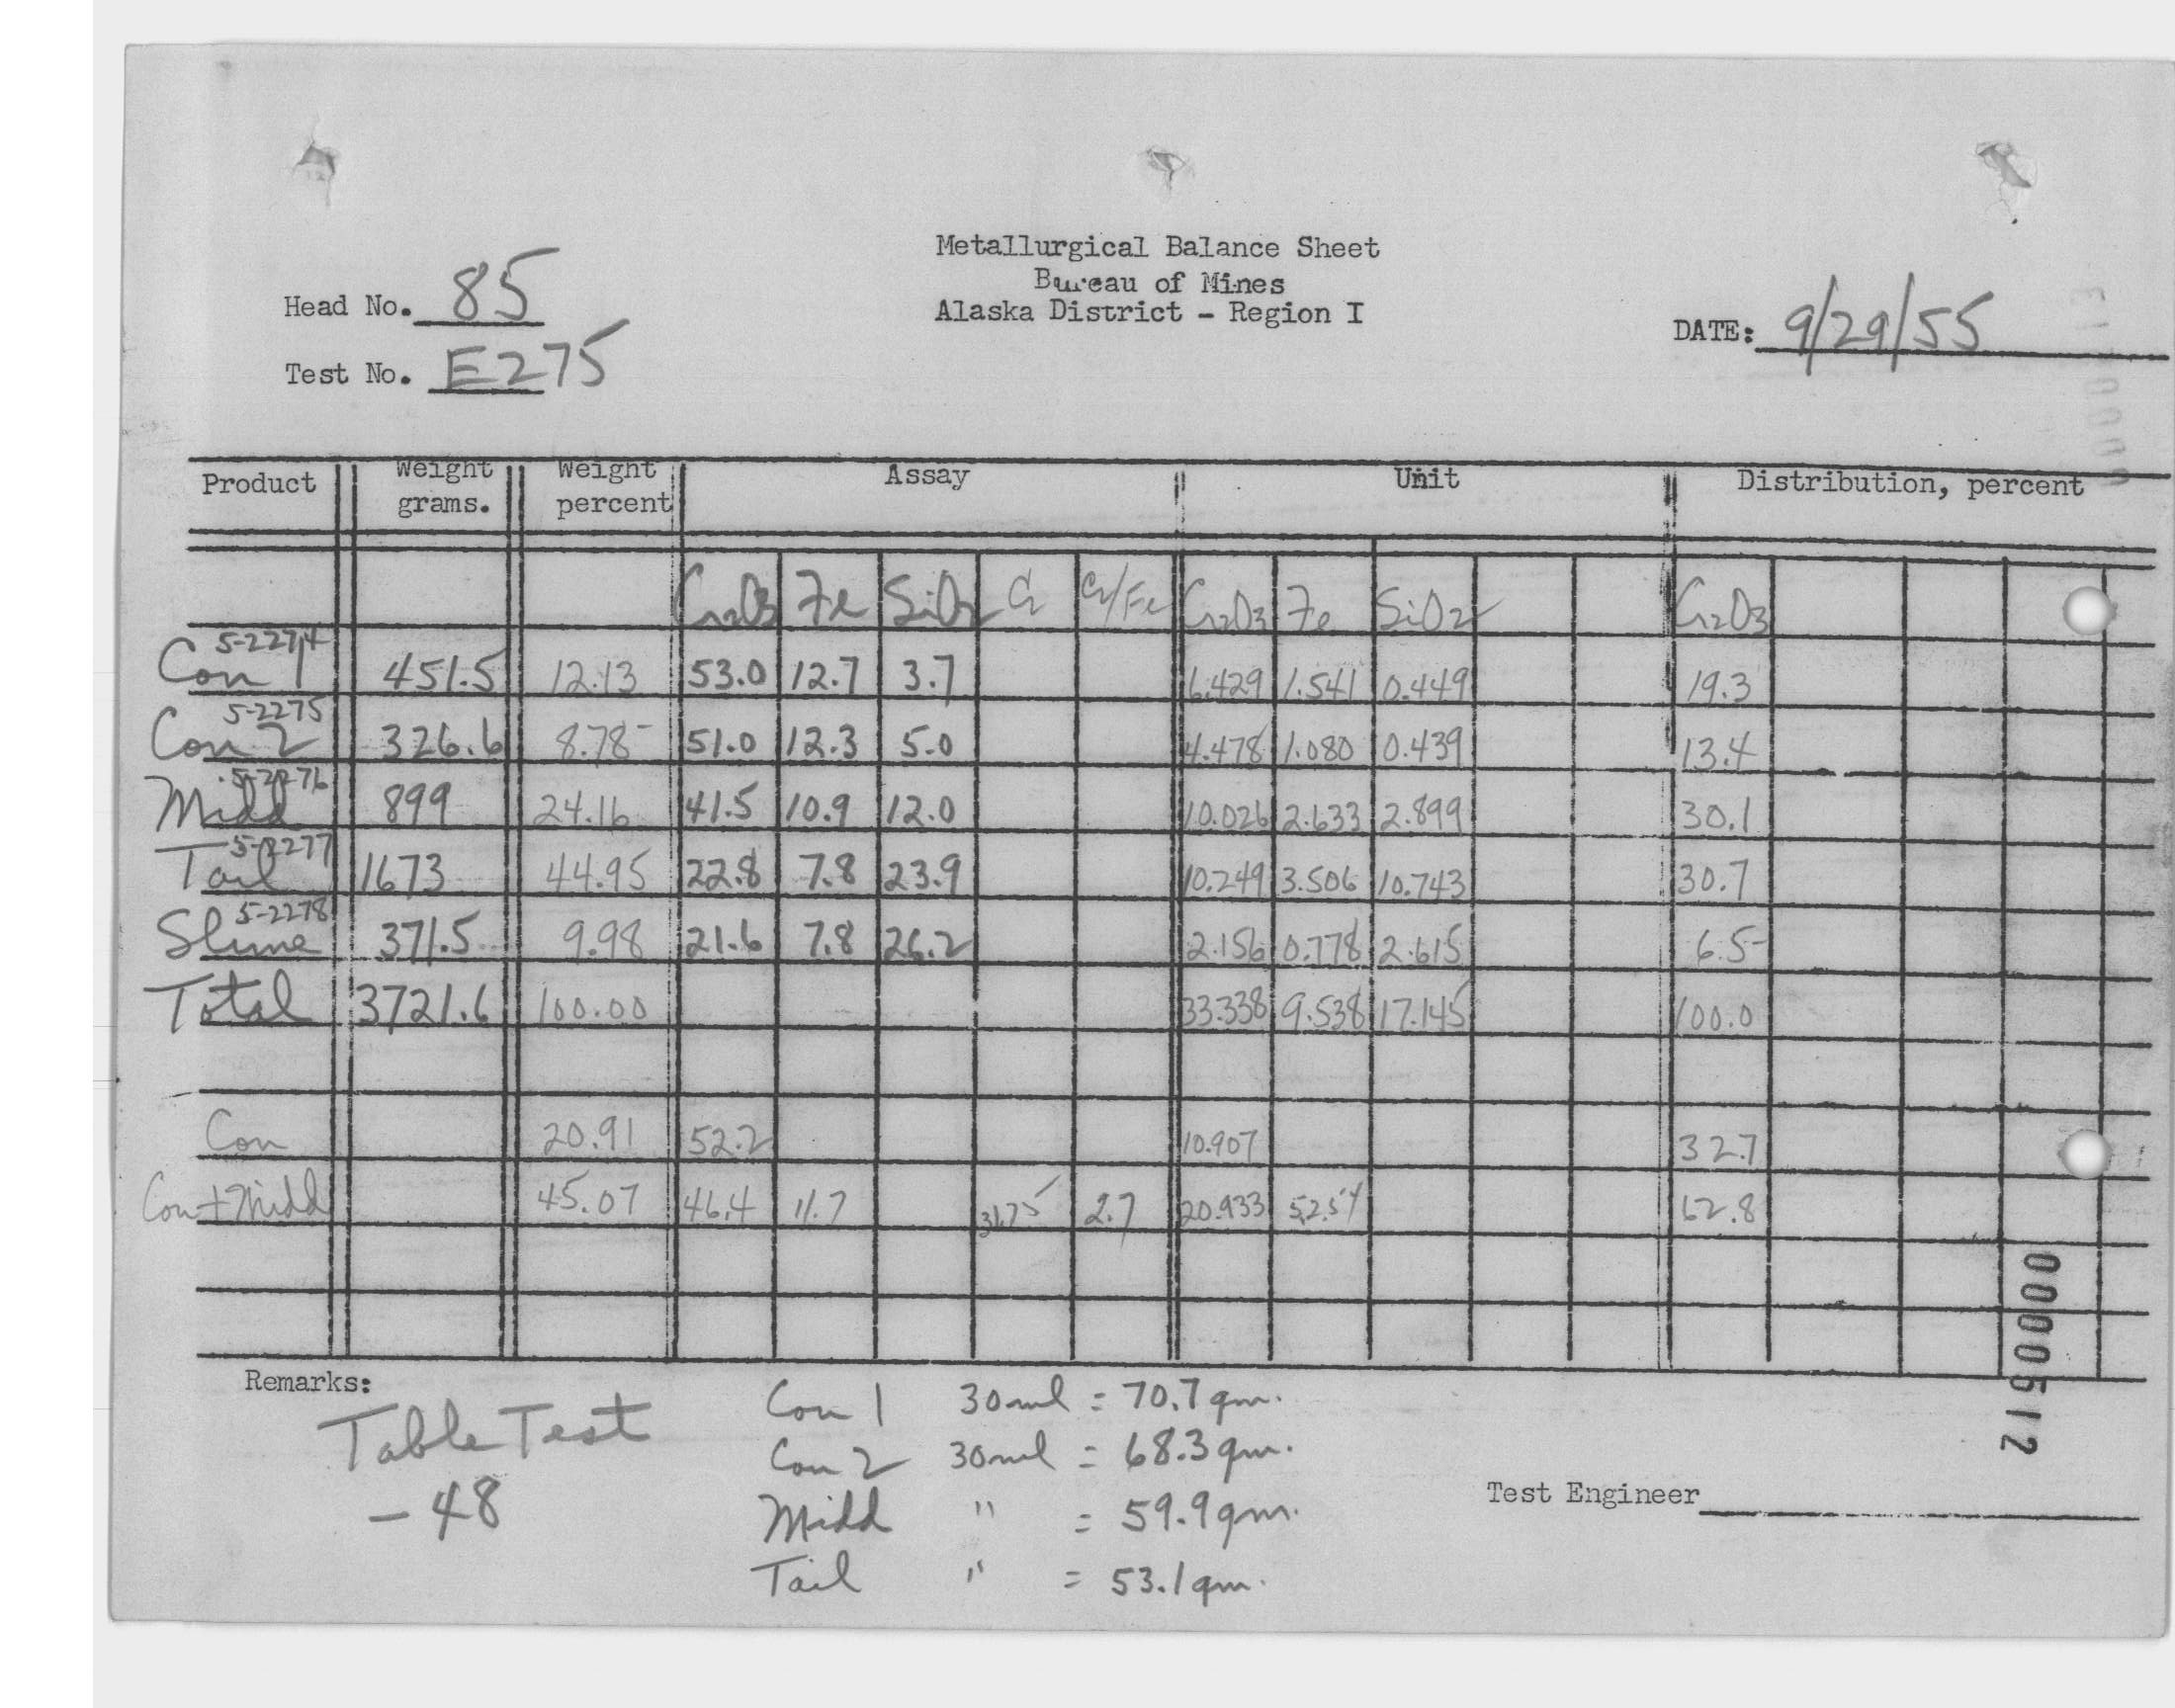 Metallurgical Balance Sheet
Bureau of Mines
Alaska District - Region I
Head No. 85
Test No. E275
DATE: 9/29/55
Product Weight grams. Weight percent Assay Unit Distribution, percent
Cr2O3 Fe SiO2 Cr Cr/Fe Cr2O3 Fe SiO2 Cr2O3
5-2274
Con 1 451.5 12.13 53.0 12.7 3.7 6.429 1.541 0.449 19.3
5-2275
Con 2 326.6 8.78 51.0 12.3 5.0 4.478 1.080 0.439 13.4
5-2276
Midd 899 24.16 41.5 10.9 12.0 10.026 2.633 2.899 30.1
5-2277
Tail 1673 44.95 22.8 7.8 23.9 10.249 3.506 10.743 30.7
5-2278
Slime 371.5 9.98 21.6 7.8 26.2 2.156 0.778 2.615 6.5
Total 3721.6 100.00 33.338 9.538 17.145 100.0
Con 20.91 52.2 10.907 32.7
Con + Midd 45.07 46.4 11.7 31.75 2.7 20.933 5.254 62.8
Remarks:
Table Test
- 48
Con 1 30ml = 70.7 gm.
Con 2 30ml = 68.3 gm.
Midd " = 59.9 gm.
Tail " = 53.1 gm.
Test Engineer
0000512